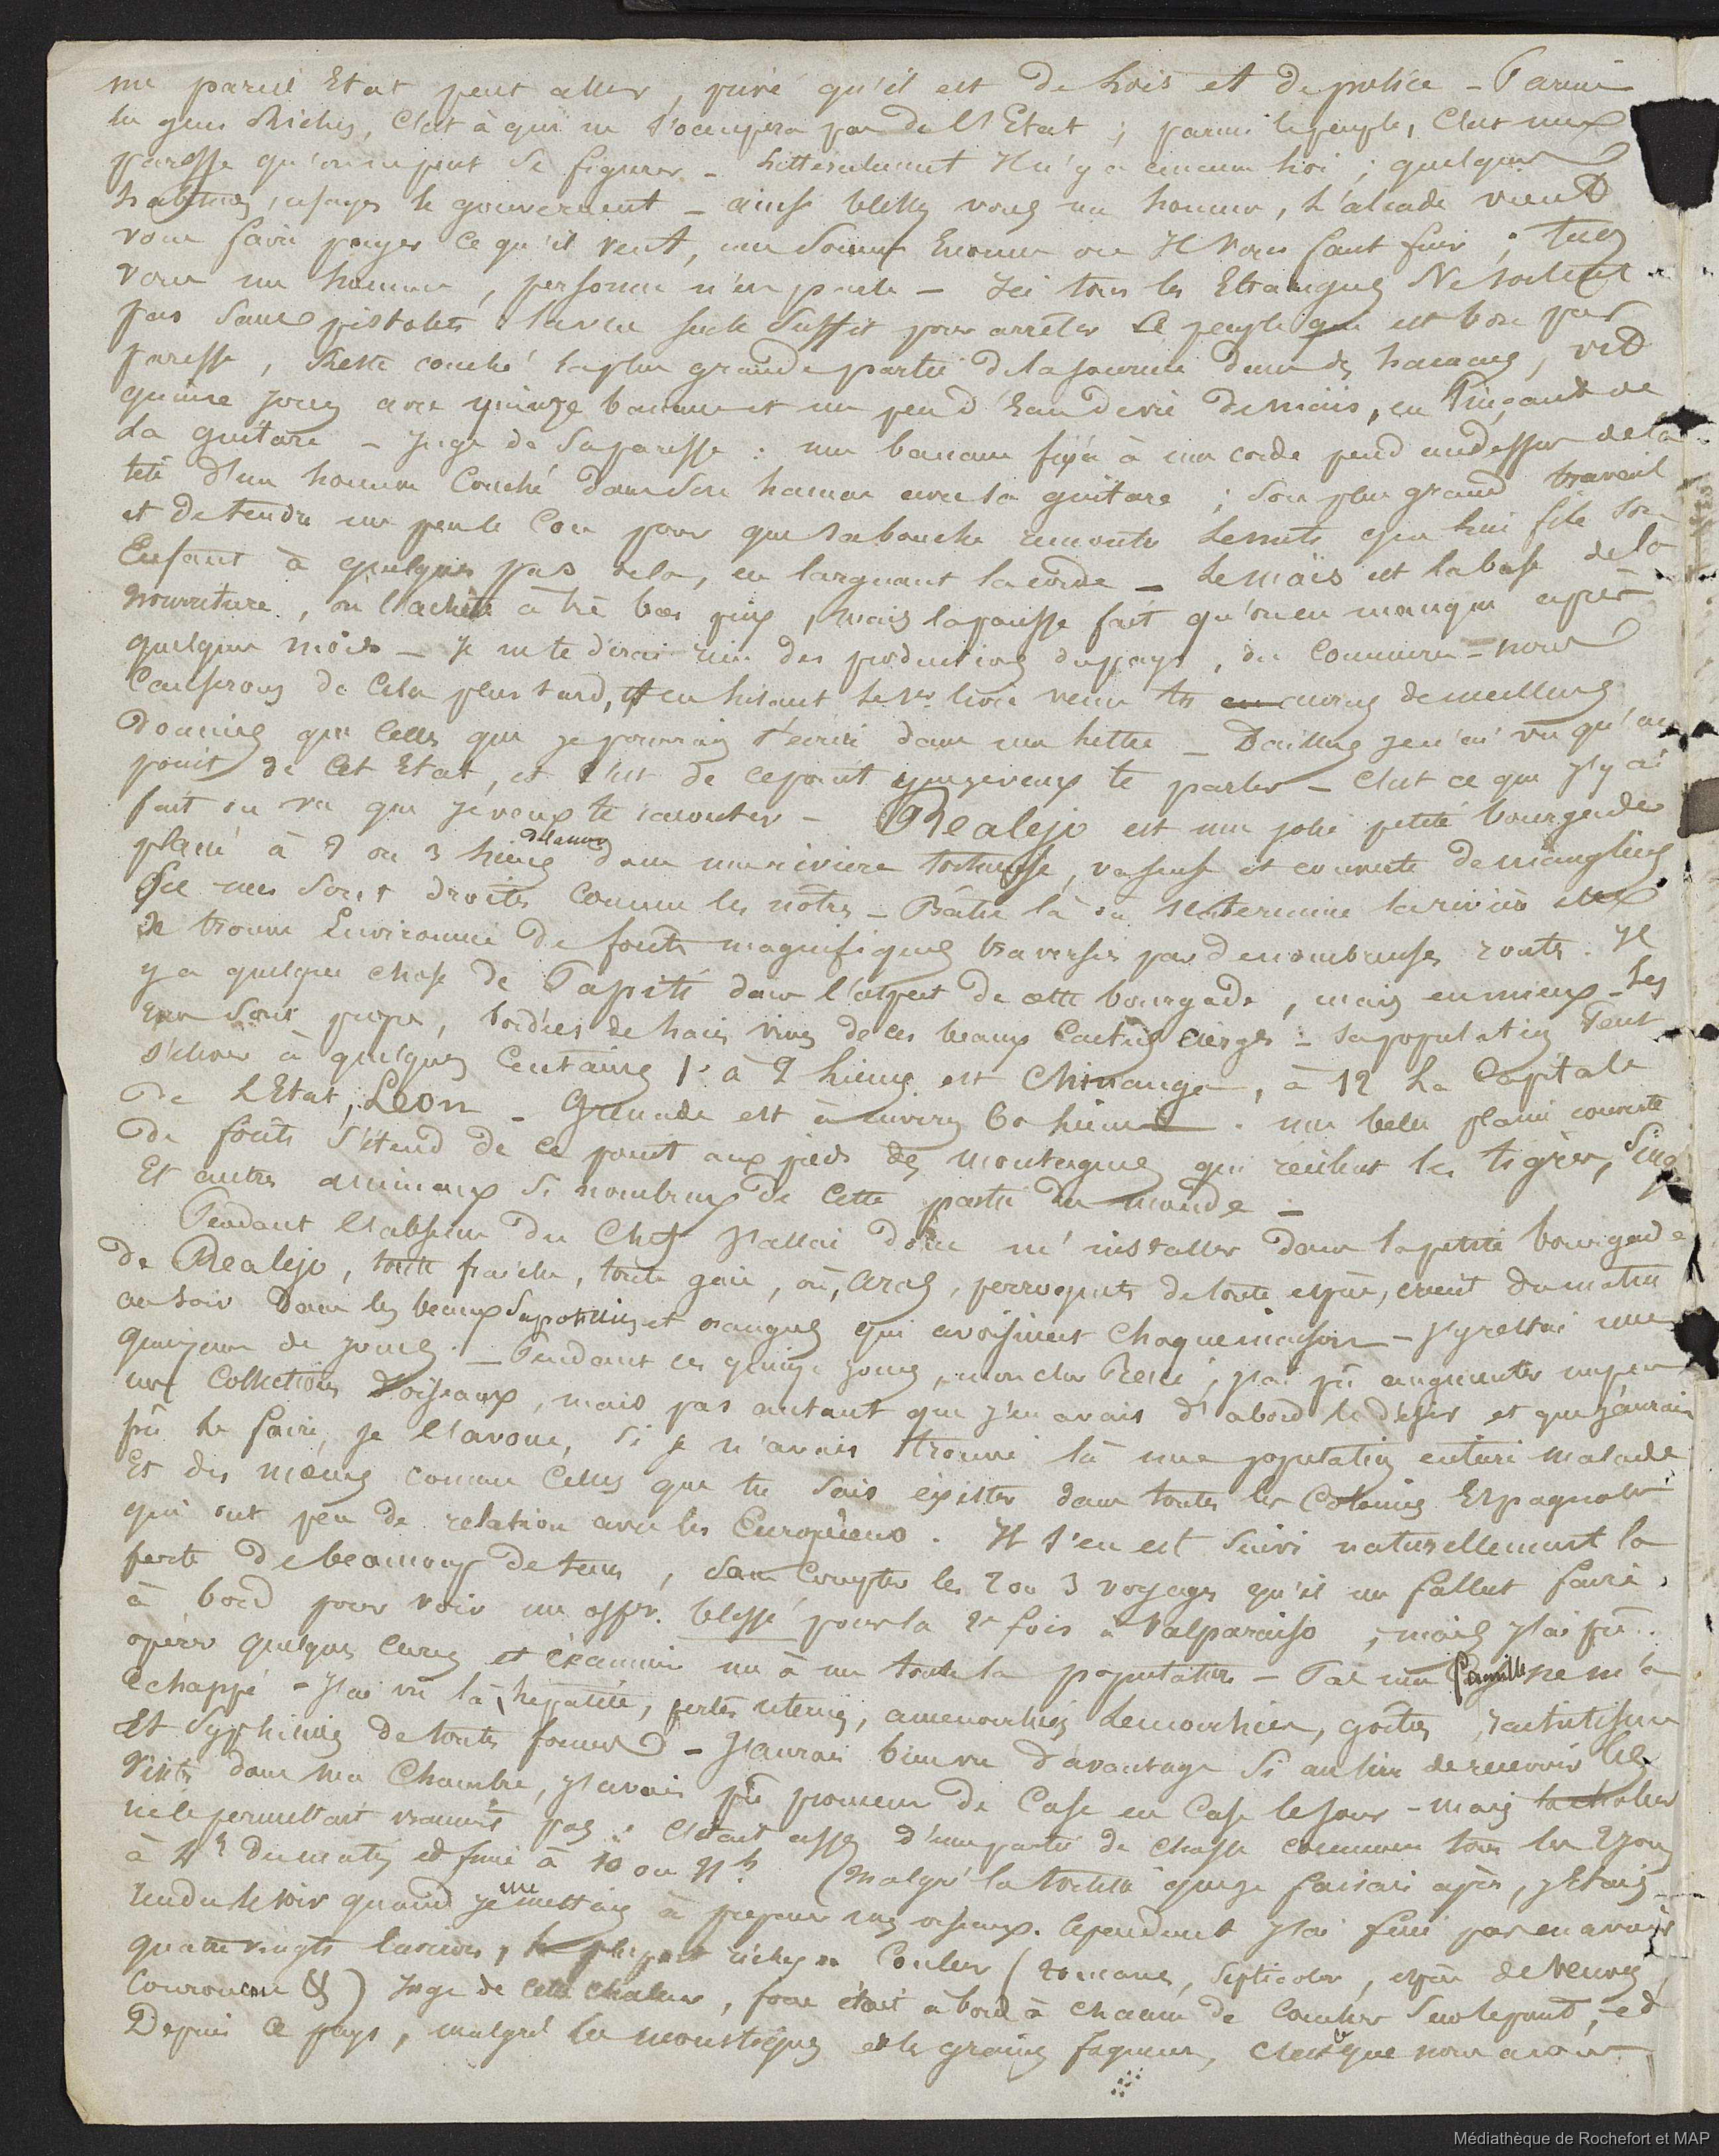 un pareil Etat peut aller, privé qu'il est de Lois et de police - Parmi
les gens Riches, C'est à qui ne s'occupera pas de l'Etat ; parmi le peuple, C'est une
paresse qu'on ne peut se figurer - Litteralement Il n'y a aucune Loi ; quelques
habitudes, usages le gouvernent - ainsi blessez vous un homme, L'alcade vient
vous faire payer ce qu'il veut, une somme Enorme ou Il vous faut fuir ; tuez
vous un homme, personne n'en parle - Ici tous les Etrangers Ne sortent
pas sans pistolets : la vue seule suffit pour arrêter Le peuple qui est bon par
paresse, Reste couché la plus grande partie de la journée dans des hamacs, vit
quinze jours avec quinze bananes et un peu d'Eau de vie de maïs, en Pinçant de
La guitare - Juge de sa paresse : une banane fixée à une corde pend au dessus de la
tête d'un homme Couché dans son hamac avec la guitare ; Son plus grand travail
est de tendre un peu le Cou pour que sa bouche rencontre Le mets que lui file son
Enfant à quelques pas de la, en larguant la corde - Le maïs est la base de la
Nourriture, on l'achète à très bas prix, mais la paresse fait qu'on en manque après
quelques mois - Je ne te dirai rien des productions du pays, du Commerce - nous
Causerons de Cela plus tard, et en lisant le 1er livre venu tu en auras de meilleures
Données que Celles que je pourrais t'écrire dans une Lettre - D'ailleurs je n'ai vu qu'un
point de Cet Etat, et c'est de ce point que je veux te parler - C'est ce que j'y ai
fait ou vu que je veux te raconter - Realejo est une jolie petite bourgade
placé à 2 ou 3 Lieues de la mer dans une rivière tortueuse, vaseuse et couverte de mangliers
Ses rues sont droites Comme les nôtres - Bâtie là où se termine la rivière elle
se trouve Environnée de forêts magnifiques traversées par de nombreuses routes. Il
y a quelque chose de Papiti dans l'aspect de cette bourgade, mais en mieux - Les
rues sont propres, bordées de haies vives de ces beaux Cactus cierges - Sa population Peut
s'élever à quelques Centaines 1. à 2 Lieues est Chinanga, à 12 La Capitale
De L'Etat, Léon - Grenade est à environ 60 Lieues. une belle plaine couverte
De forêts s'étend de ce point aux pieds des montagnes qui recèlent les tigres, Singes
Et autres animaux si nombreux de Cette partie du monde -
Pendant l'absence du Chef j'allai donc m'installer dans la petite bourgade
de Realejo, toute fraiche, toute gaie, où, aras, perroquets de toute espèce, crient du matin
au soir Dans les beaux Sapotilliers et orangers qui avoisinent Chaque maison - j'y restai une
quinzaine de jours - Pendant ces quinze jours, mon cher René, j'ai pû augmenter un peu
ma Collection d'oiseaux, mais pas autant que j'en avais d'abord le desir et que j'aurais
pû le faire, je l'avoue, si je n'avais trouvé là une population entière malade
Et des moeurs comme Celles que tu Sais exister dans toutes les Colonies Espagnoles
qui ont peu de relation avec les Européens. Il s'en est Suivi naturellement la
perte De beaucoup de tems, sans Compter les 2 ou 3 voyages qu'il me fallut faire
à bord pour voir un offer. blessé pour la 2e fois à Valparaiso ; mais j'ai pû
opérer quelques cures et examiner un à un toute la population - Pas une famille ne m'a
Echappé - J'ai vu là, hepatite, pertes uterines, amenorrhées Leucorrhées, goîtres, rachitisme
Et Syphilis de toutes formes - J'aurais bien vu d'avantage Si au lieu de recevoir les
Visites dans ma Chambre, j'avais pû promener de Case en Case le jour - mais la chaleur
ne le permettait vraiment pas : C'était assez d'une partie de Chasse commencée tous les jours
à 4h. Du matin et finie à 10 ou 11h. (Malgré la toilette que je faisais après, j'etais
rendu le soir quand je me mettais à préparer mes oiseaux. Cependant j'ai fini par en avoir
quatre vingts environ, la plupart riches en Couleur (toucans, septicolor, espèce de veuves,
Couroucou &) Juge de cette chaleur, four était à bord à chacun de Coucher Sur le pont, et
Depuis ce pays, malgré les moustiques et les grains fréquens, c'est ce que nous avons
Médiathèque de Rochefort et MAP